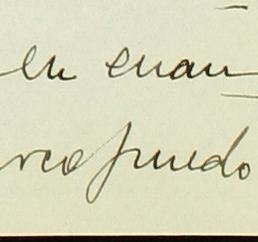 en cuan
rco puedo